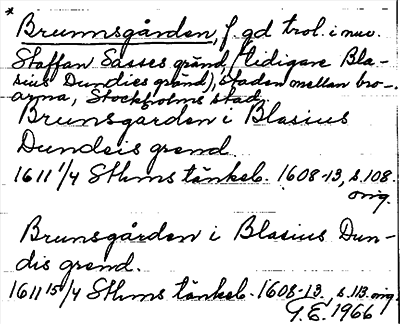 * Brunnsgården, f. gd trol. i nuv.
Staffan Sasses gränd, (tidigare Bla-
sius Dundies gränd), staden mellan bro-
arna, Stockholms stad.
Brunsgården i Blasius
Dundeis grend.
1611 1/4 Sthms tänkeb. 1608-13, s. 108.
orig.
Brunsgården i Blasius Dun-
dis grend.
1611 15/4 Sthms tänkeb. 1608-13, s. 113. orig.
G.E. 1966